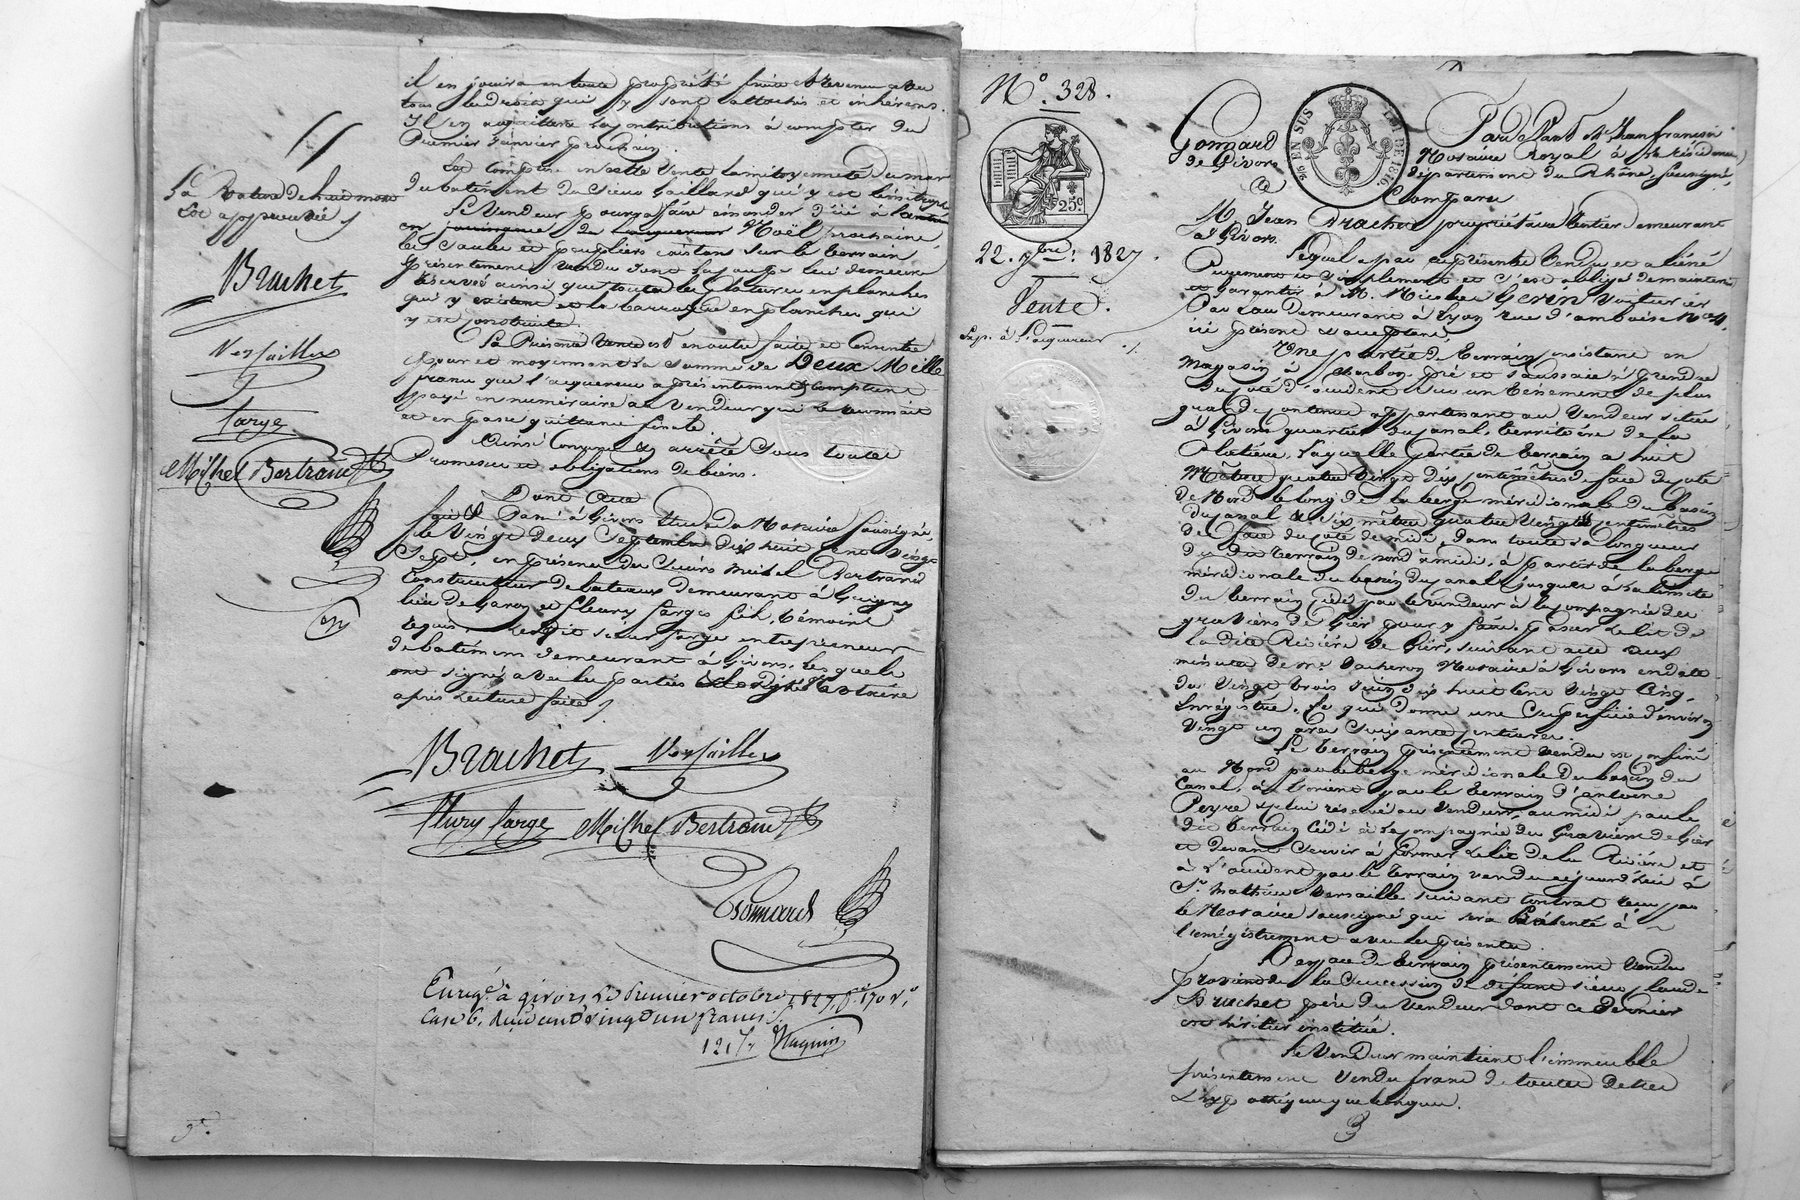 il en jouira en toute propriété fruits et revenus avec
tous les droits qui y sont attachés et inhérens.
Il en acquittera les contributions à compter du
Premier Janvier prochain.
Est comprise en cette vente la mitoyenneté du mur
du batiment du Sieur Gaillard qui y est
Le Vendeur pourra faire émonder d'ici à
Noël prochaine,
les Saules et peupliers existans sur le terrain
présentement vendu dont la coupe lui demeure
réservée ainsi que toutes les clotures en planches
qui y existent et la barraque en planches qui
y est construite.
La Présente Vente est en outre faite et consentie
pour et moyennant la somme de Deux Mille
francs que l'acquereur a présentement et comptant
payé en numéraire au Vendeur qui le reconnait
et en passe quittance finale.
Ainsi Convenu et arrêté Sous toutes
Promesses et obligations de biens.
Dont Acte
fait et Passé à Givors Etude du Notaire soussigné,
le Vingt deux Septembre dix huit cent vingt
Sept, en présence des Sieurs Michel Bertrand
Constructeur de bateaux demeurant à Grigny
lieu de Garon et fleury farges fils, témoins
requis, ledit sieur farges entrepreneur
de batimens demeurant à Givors. Lesquels
ont signé avec les parties et le dit Notaire
après Lecture faite
La Rature de huit mots
est approuvée
Brachet
Versaille
farge
Michel Bertrand
Brachet Versaille
fleury farge Michel Bertrand
Gonnard
Enregé à givors Le premier octobre 1827, fo 170 Ro
Case 6, Reçu cent vingt un francs
121 f
N° 328.
25c
22. 7bre 1827.
Vente.
Exp. à l'acquereur
Gonnard
de Givors
EN SUS
LOI DE 1816
Par devant Me Jean francois
Notaire Royal à la résidence
département du Rhône, soussigné,
Comparu
M. Jean Brachet propriétaire rentier demeurant
à Givors
Lequel a par ces présentes Vendu et aliéné
Purement et Simplement et s'est obligé de maintenir
et garantir à M. Nicolas Gerin Voiturier
Par eau demeurant à Lyon rue d'amboise N°
ici présent et acceptant,
Une partie de Terrain consistant en
Magasin à charbon, pré et saussaie à prendre
du coté d'occident sur un ténement de plus
grande contenue appartenant au Vendeur située
à Givors quartier du canal, territoire de la
Platière, Laquelle Partie de terrain a huit
Mètres quatre vingt dix centimètres de face du coté
de Nord le long de la berge méridionale du bassin
du canal et six mètres quatre vingts centimètres
de face du coté de midi, dans toute sa longueur
du dit terrain de nord à midi, à partir de la berge
méridionale du bassin du canal jusques à la limite
du terrain cédé par le vendeur à la compagnie des
graviers de Gier pour y faire passer le lit de
la dite Rivière de Gier, suivant acte aux
minutes de Me Vacheron Notaire à Givors en date
du Vingt trois Juin dix huit cent vingt cinq,
Enregistré. Ce qui donne une Superficie d'environ
Vingt un ares Soixante centiares.
Le Terrain présentement vendu est confiné
au Nord par la berge méridionale du bassin du
Canal, à l'orient par le terrain d'antoine
Peyre et celui réservé au Vendeur, au midi par le
dit terrain cédé à la compagnie des Graviers de Gier
et devant servir à former le lit de la Rivière et
à l'occident par le terrain vendu aujourd'hui à
Sr Mathieu Versaille suivant contrat reçu par
le Notaire soussigné qui sera Présenté à
l'enregistrement avec les présentes.
L'espace de terrain présentement Vendu
provient de la Succession de défunt sieur Claude
Brachet père du Vendeur dont ce dernier
est héritier institué.
Le Vendeur maintient l'immeuble
présentement Vendu franc de toutes dettes
et hypothéques quelconques.